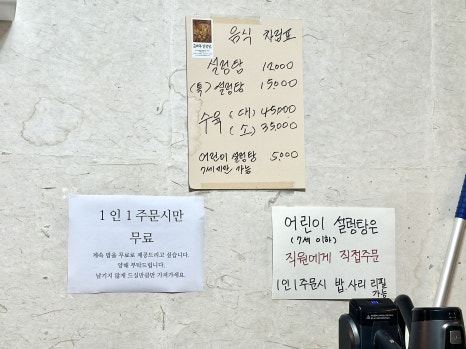 음식 차림표
설렁탕 12000
(특) 설렁탕 15000
수육 (대) 45000
(소) 35000
어린이 설렁탕 5,000
7세 미만 가능
1인 1주문시만
무료
계속 밥을 무료로 제공드리고 싶습니다.
양해 부탁드립니다.
남기지 않게 드실만큼만 가져가세요.
어린이 설렁탕은
(7세 이하)
직원에게 직접주문
1인 1주문시 밥.사리 리필
가능